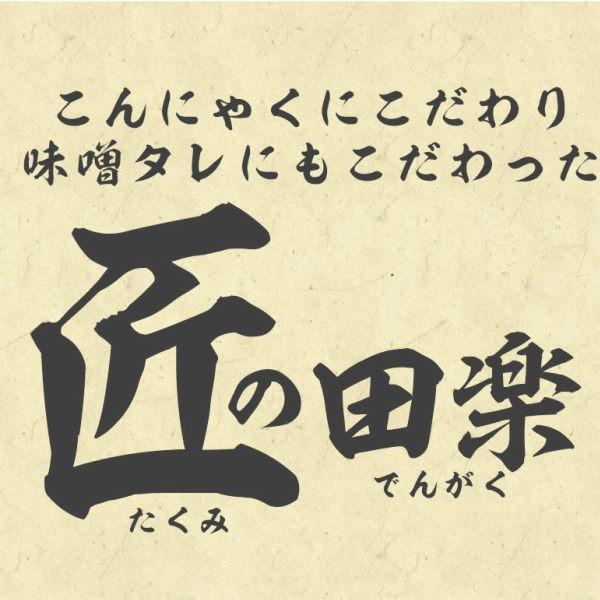 こんにゃくにこだわり
味噌タレにもこだわった
匠の田楽
たくみ でんがく